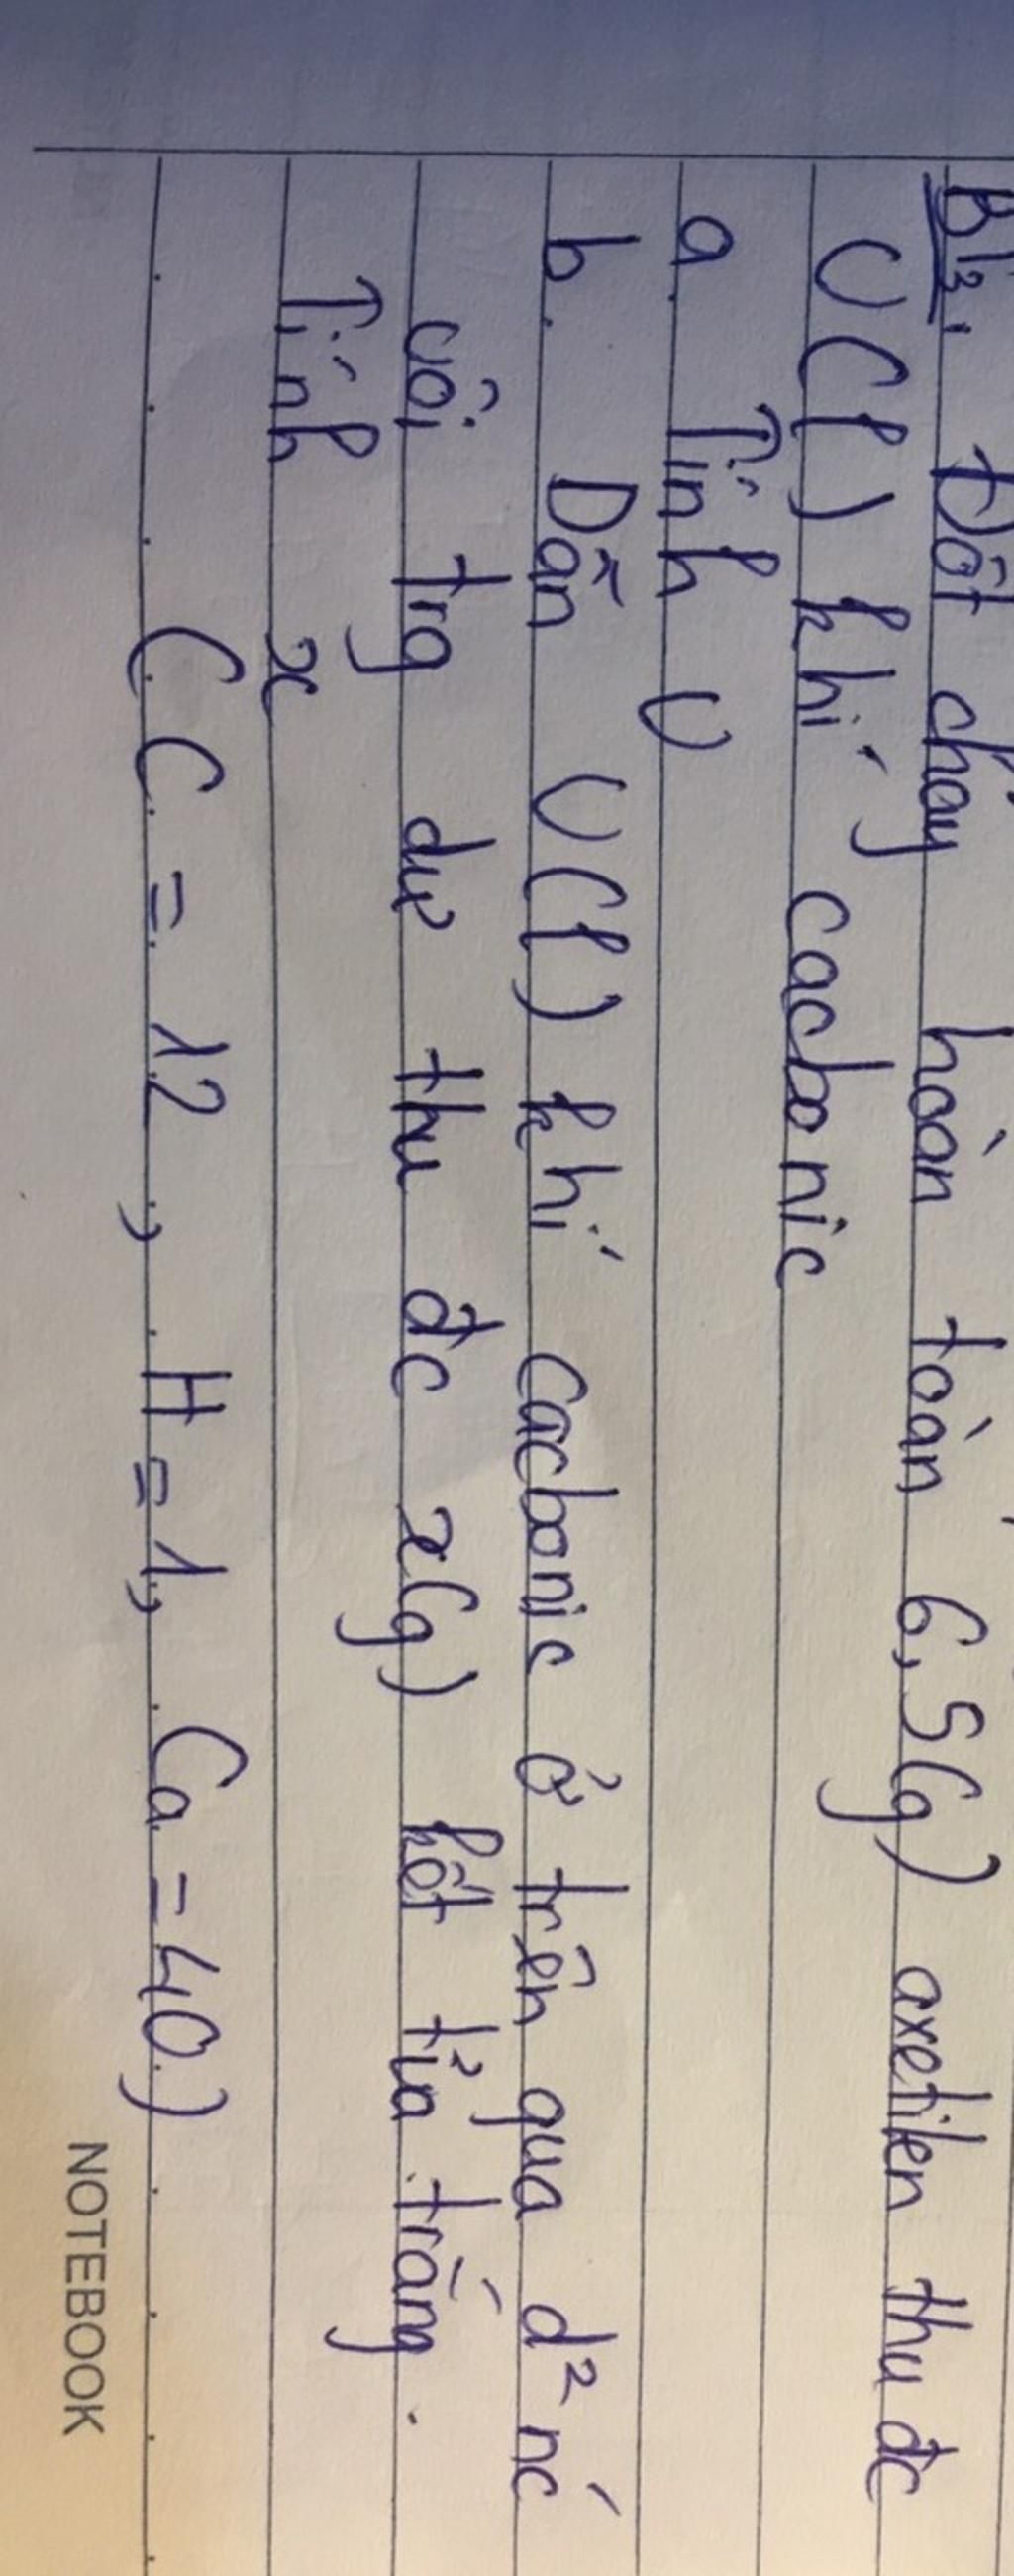 B13. Đốt cháy hoàn toàn 6,5(g) axetilen thu đc
V(l) khí cacbonic
a. Tính V
b. Dẫn V(l) khí cacbonic ở trên qua d² nć
vôi trg dư thu đc x(g) kết tủa trắng.
Tính x
(C = 12, H = 1, Ca = 40)
NOTEBOOK